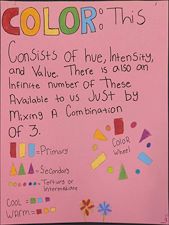 COLOR: This
Consists of hue, Intensity,
and Value. There is also an
Infinite number of These
Available to us Just by
Mixing A Combination
of 3.
= Primary
= Secondary
= Tertiary or
Intermediate
COOL =
WARM =
COLOR
Wheel